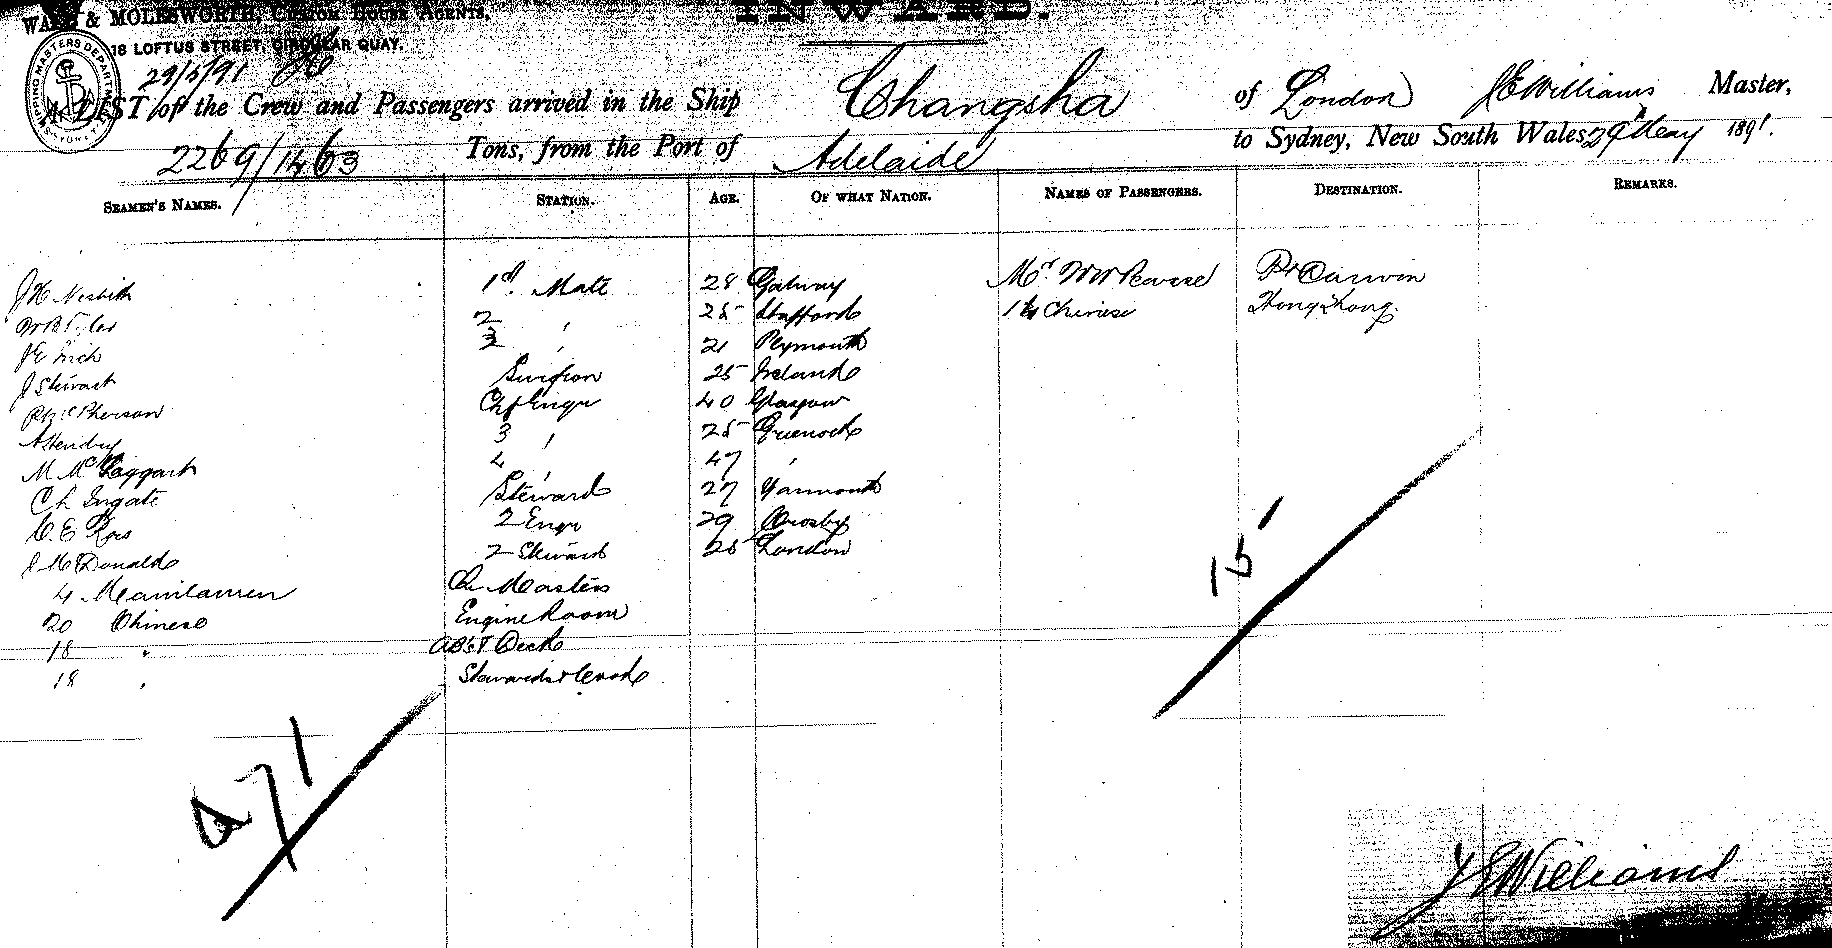 INWARD.
& MOLESWORTH, CUSTOM HOUSE AGENTS,
18 LOFTUS STREET, CIRCULAR QUAY.
SHIPPING MASTERS DEPARTMENT SYDNEY
29/5/91
A LIST of the Crew and Passengers arrived in the Ship Changsha of London J E Williams Master,
2269/1463 Tons, from the Port of Adelaide to Sydney, New South Wales 29 May 1891.
SEAMEN'S NAMES. STATION. AGE. OF WHAT NATION. NAMES OF PASSENGERS. DESTINATION. REMARKS.
J H Nesbitt 1st Mate 28 Galway Mrs Pt Darwin
2 " 25 Stafford 14 Chinese Hong Kong
J E 3 " 21 Plymouth
J Stewart Surgeon 25 Ireland
McPherson Chf Engr 40 Glasgow
A Hendry 3 " 25 Greenock
M McTaggart 4 " 47 "
C h Ingate Steward 27 Yarmouth
C. E Ross 2 Engr 29 Crosby
J McDonald 2 Steward 25 London
4 Manilamen Qr Masters
20 Chinese Engine Room
18 " Deck
18 " Stewards & Cooks
71
15
J E Williams